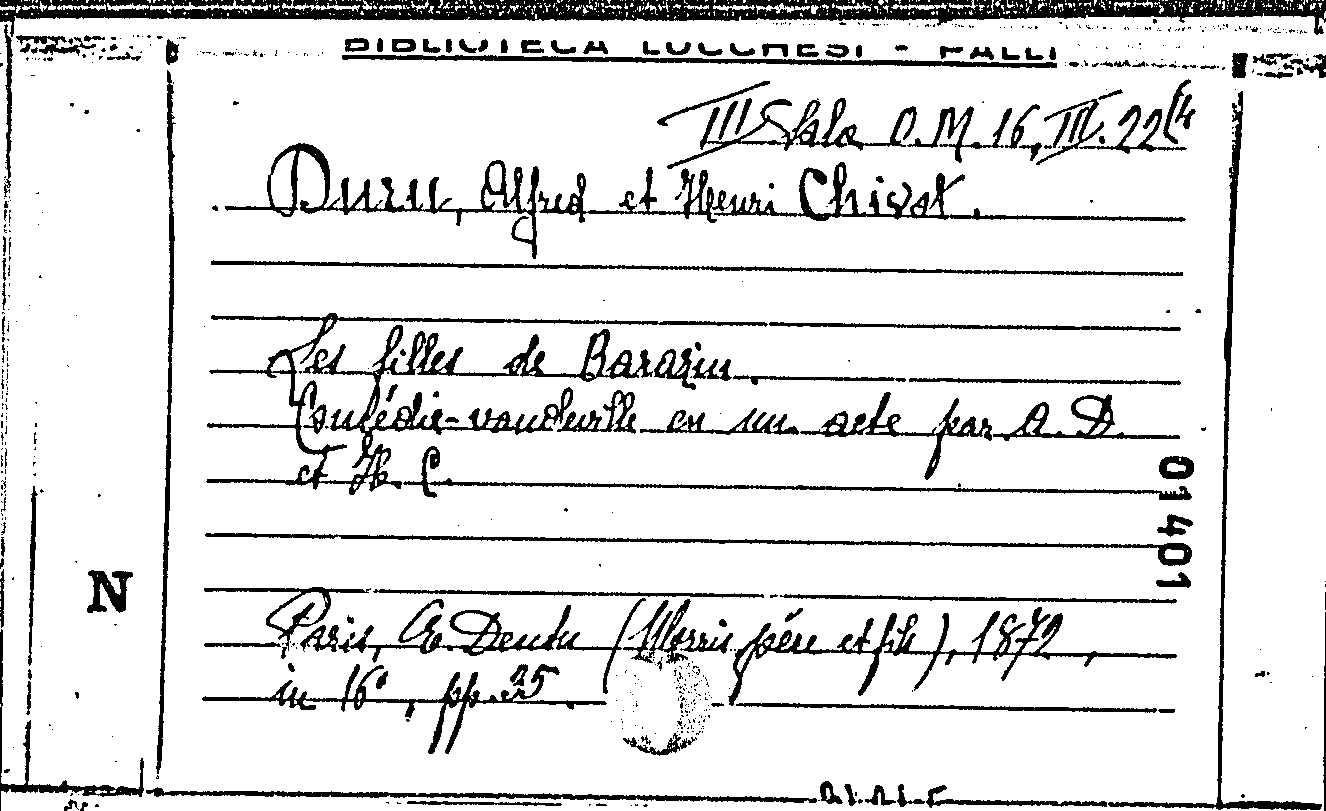 BIBLIOTECA LUCCHESI - PALLI
III Sala O. M. 16, III. 22(4
Duru, Alfred et Henri Chivot.
Les filles de Barazin.
Comédie-vaudeville en un acte par A. D.
et H. C.
01401
N
Paris, E. Dentu (Morris père et fils), 1872,
in 16°, pp. 35.